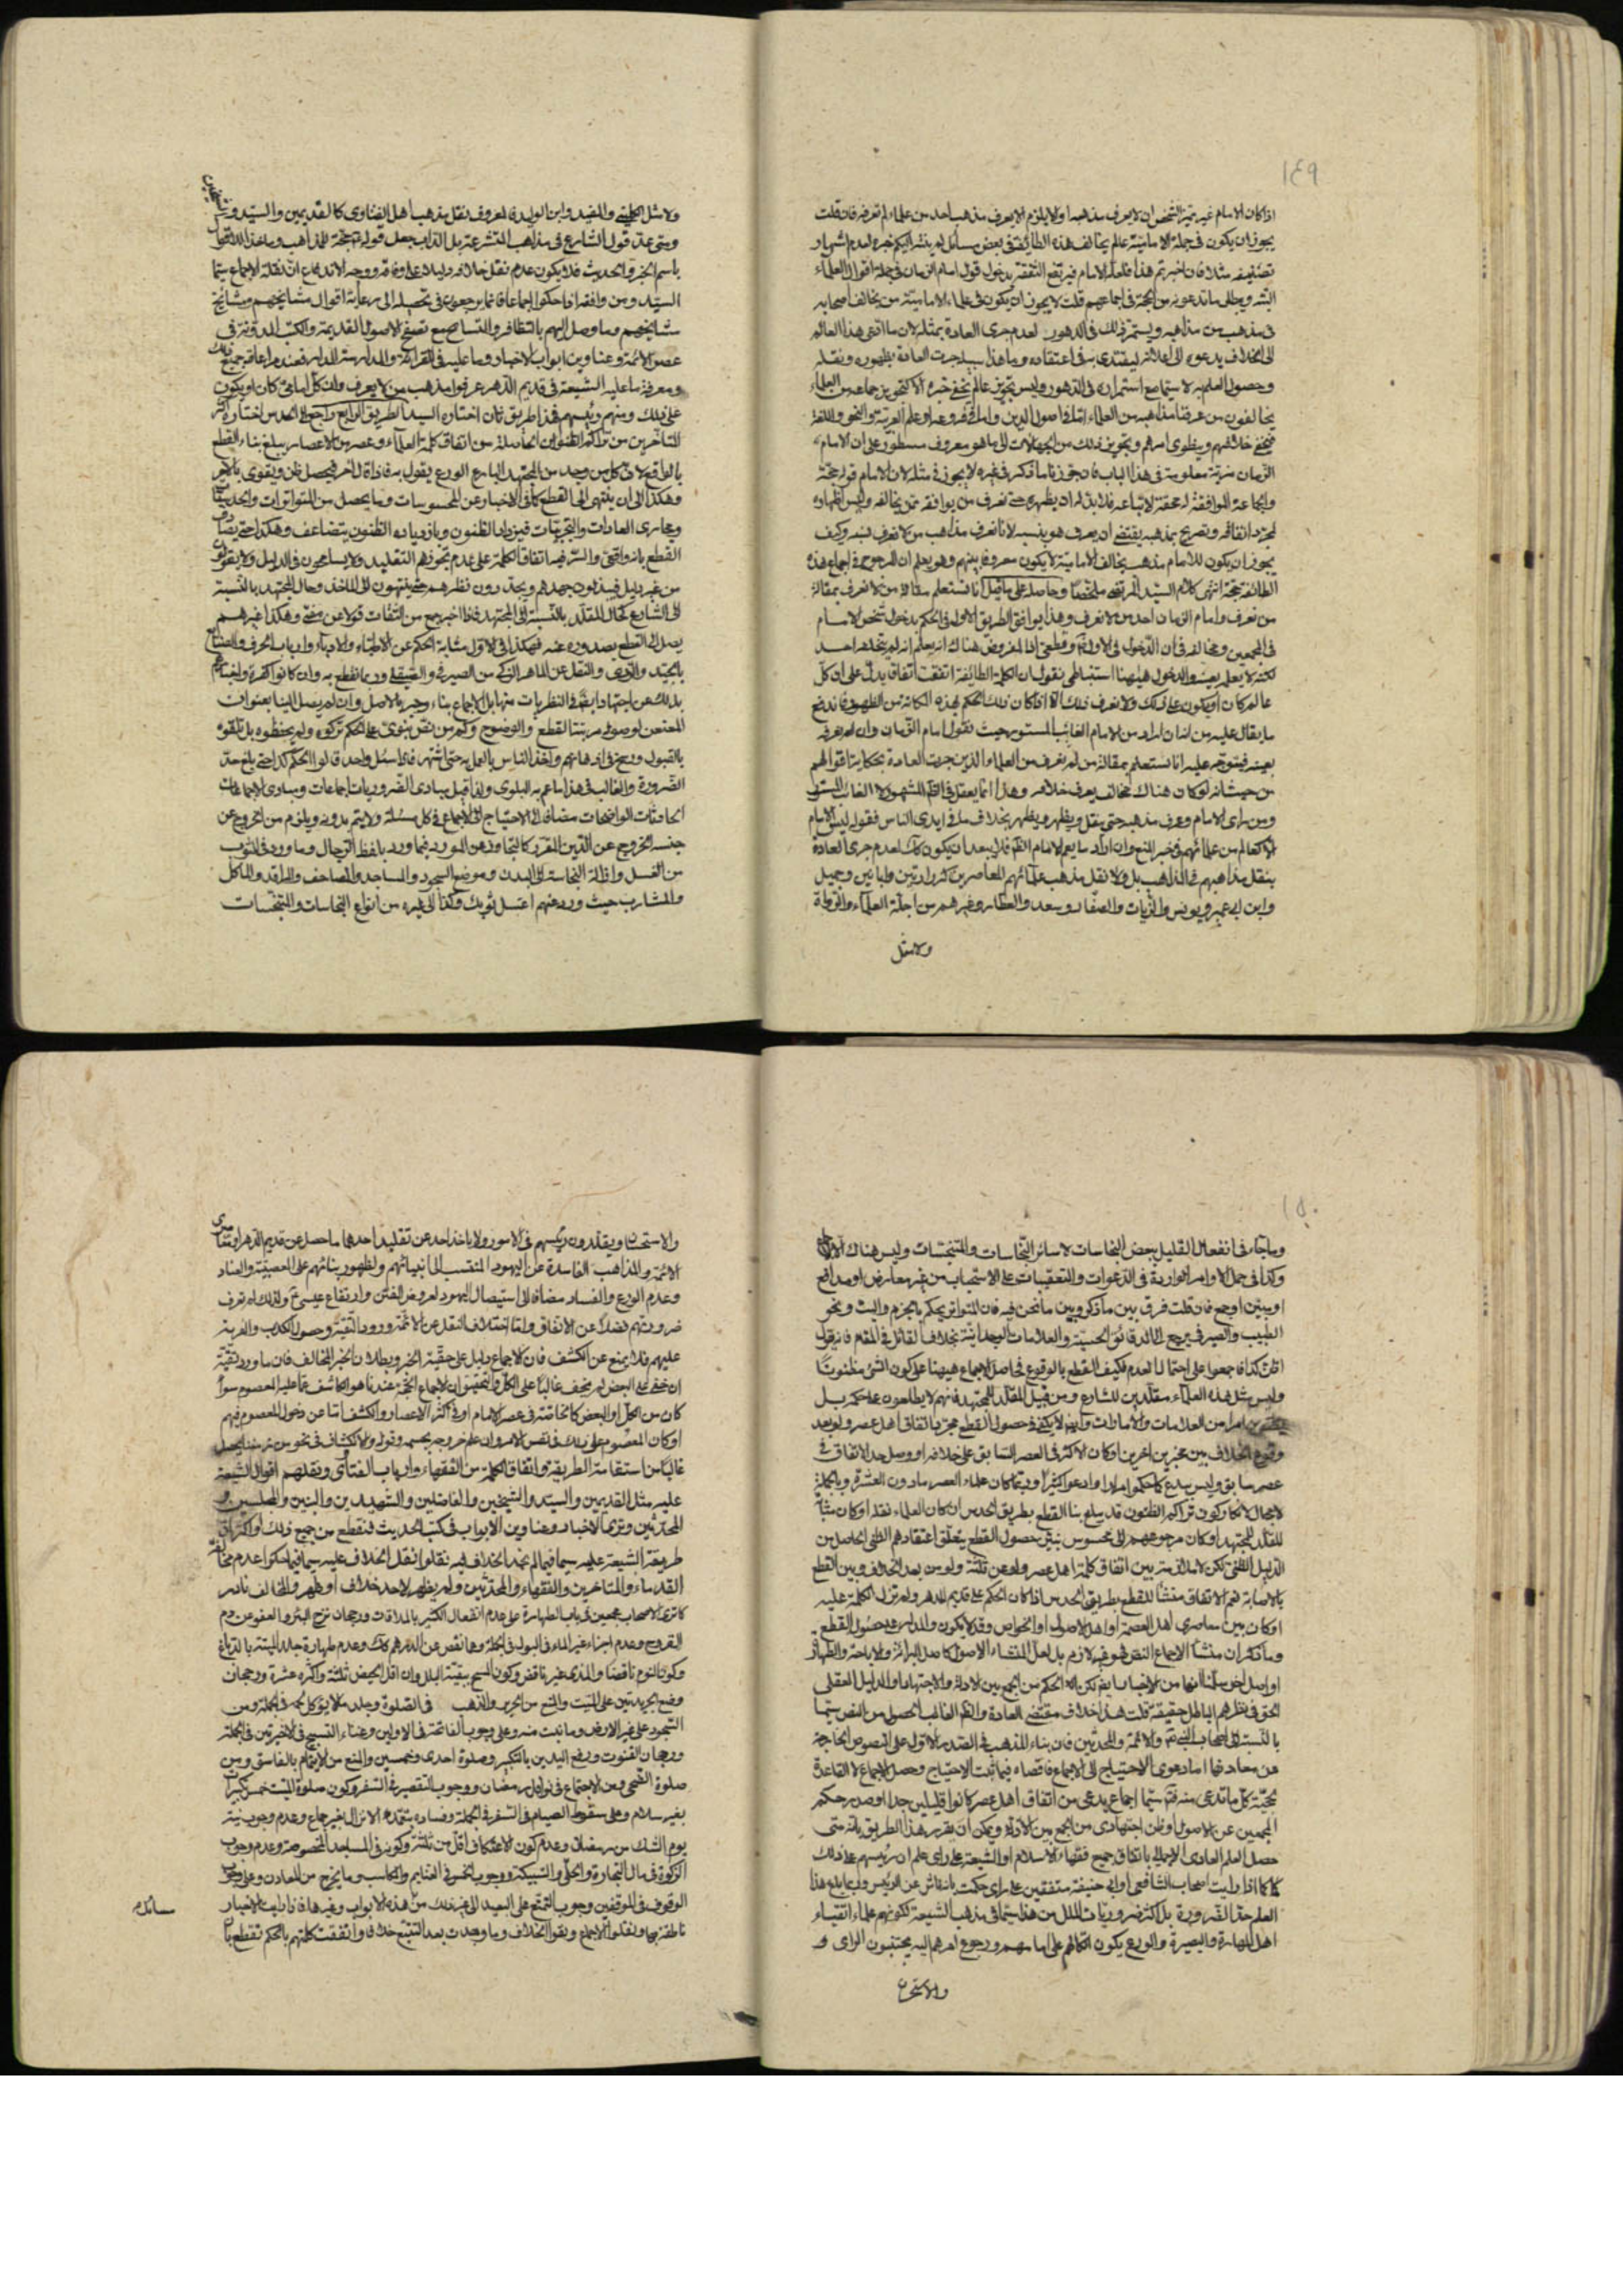 ١٤٩
اذا كان الامام غير متميز الشخص ان لا يعرف مذهبه اولا يلزم ان لا يعرف مذهب احد من علماء لم تعرفه فان قلت
يجوز ان يكون في جملة الامامية عالم يخالف هذه الطائفة في بعض مسائل لم ينشر اليكم خبره لعدم اشتهار
تصنيفه مثلا فان اخبر تم هذا فلعله الامام فيرتفع الثقة بدخول قول امام الزمان في جملة اقوال العلماء
البتة ويبطل ما تدعونه من الحجة في اجماعهم قلت لا يجوز ان يكون في علماء الامامية من يخالف اصحابه
في مذهب من مذاهبه ويستمر ذلك في الدهور لعدم جرى العادة بمثله لان ما اقتضى هذا العالم
الى الخلاف يدعوه الى اعلانه ليقتدى به في اعتقاده وما هذا سبيله جرت العادة بظهوره ونقله
وحصول العلم به لا سيما مع استمراره في الدهور وليس تجويز عالم يخفى خبره الا كتجويز جماعة من العلماء
يخالفون من عرفنا مذاهبه من العلماء اما في اصول الدين واما في فروعه او علم العربية والنحو واللغة
فيخفى خلافهم وينطوى امرهم وتجويز ذلك من الجهالات الى ما هو معروف مسطور على ان لامام
الزمان مزية معلومة في هذا الباب فان جوزنا ما ذكر في غيره لا يجوز في مثله لان الامام قوله حجة
والجماعة الموافقة له محقة لاتباعه فلا بد له ان يظهره حتى نعرف من يوافقه ممن يخالفه وليس اظهاره
لمجرد اتفاقه وتصريح بمذهبه يقتضى ان يعرف هو بنسبه لانا نعرف مذاهب من لا نعرف نسبه وكيف
يجوز ان يكون للامام مذهب يخالف الامامية لا يكون معروفا بينهم وهو يعلم ان المرجوح في اجماع هذه
الطائفة حجة انتهى كلام السيد المرتضى ملخصا وحاصله على ما قيل انا نستعلم مقالة من لا نعرف بمقالة
من نعرف وامام الزمان احد من لا نعرف وهذا يوافق الطريق الاول في الحكم بدخول شخص الامام
في المجمعين ومخالفه فان الدخول في الاول قطعي اذ المفروض هناك انه يعلم انه لم يتخلف احد
لكنه لا يعلم بعينه والدخول هيهنا استنباطي نقول ان كلمة الطائفة اتفقت اتفاق يدل على ان كل
عالم كان او يكون على ذلك ولا نعرف ذلك الا اذا كان ذلك الحكم بهذه المكانة من الظهور فاندفع
ما يقال عليه من انه ان اراد من الامام الغائب المستور حيث نقول امام الزمان وان لم نعرفه
بعينه فيتوجه عليه انا نستعلم بمقالة من لم نعرف من العلماء الذين جرت العادة بحكاية اقوالهم
من حيث انه لو كان هناك مخالف يعرف خلافه وهذا انما يعقل في الظاهر المشهور لا الغائب المستور
ومن راى الامام وعرف مذهبه حتى ينقل ويظهر ويظهر بخلاف ما في ايدى الناس فقوله ليس الامام
الا كعالم من علمائهم في حيز المنع وان اراد ما يعم الامام الظاهر فلا يبعد ان يكون كذلك لعدم جرى العادة
بنقل مذاهبهم في المذاهب بل ولا نقل مذهب علمائهم المعاصرين كزرارتين وابانين وجميل
وابن ابي عمير ويونس والزيات والصفار وسعد والعطار وغيرهم من اجلة العلماء والرواة
ولا مثل
ولا مثل الكليني والمفيد وابن الوليد فالمعروف نقل مذهب اهل الفتاوى كالقديمين والسيد و
ومتى عد قول الشارع في مذاهب المتشرعة بل الداب جعل قوله حجة للمذاهب وماخذ الاقوال
باسم الخبر والحديث فلا يكون عدم نقل خلافه دليلا على وفاقه ووجه الاندفاع ان نقلة الاجماع سيما
السيد ومن وافقه اذا حكوا اجماعا فانما يرجعون في تحصيله الى رعاية اقوال مشايخهم ومشايخ
مشايخهم وما وصل اليهم بالتظافر والتسامع مع تصفح الاصول القديمة والكتب المدونة في
عصر الائمة وعناوين ابواب الاخبار وما عليه في القرائة والمدارسة المدار فعند مراعاة جميع ذلك
ومعرفة ما عليه الشيعة في قديم الدهر عرفوا مذهب من لا يعرف وان كل امامي كان او يكون
على ذلك ومنهم رئيسهم فهذا طريق ثان اختاره السيد الطريق الرابع واجود الحدس اختاره اكثر
المتاخرين من تراكم الظنون الحاصلة من اتفاق كلمة العلماء وعصر من الاعصار يبلغ بناء القطع
بالواقع لان كل من وجد من المجتهد البارع الورع يقول به فاذا قال آخر فيحصل ظن ويقوى بآخر
وهكذا الى ان ينتهى الى القطع كما في الاخبار عن المحسوسات وما يحصل من المتواترات والحدسيات
ومجارى العادات والتجربيات فيزداد الظنون وبازدياده الظنون يتضاعف وهكذا حتى يصادف
القطع بانه واقعي والسر فيه اتفاق الكلمة على عدم تجويزهم التقليد ولا يسامحون في الدليل ولا يقولون
من غير دليل فيبذلون جهدهم ويجددون نظرهم حتى ينتهون الى الماخذ وحال المجتهد بالنسبة
الى الشارع كحال المقلد بالنسبة الى المجتهد فاذا اخبر جمع من الثقات قولا عن مفتى وهكذا غيرهم
يصل الى القطع بصدوره عنه فهكذا في الاول مثابة الحكم عن الاطباء والادباء وارباب الحرف والصنايع
بالجيد والردى والنقل عن الماهر الذكى من الصيرفي والصيقل وربما نقطع به وان كانوا كفرة واخبارهم
بذلك عن اجتهاد ايضا في النظريات منها بل الاجماع بناء وحيز بالاصل وان لم يصل الينا بعنوان
المعنعن لوصوله مرتبة القطع والوضوح وكم من نص نبوى على الحكم تركوه ولم يحفظوه بل تلقوه
بالقبول ورسخ في اذهانهم واخذ الناس بالعمل به حتى اشتهر فاذا سئل واحد قالوا الحكم كذا حتى بلغ حد
الضرورة والغالب في هذا ما عم به البلوى ولذا قيل مبادى الضروريات اجماعات ومبادى الاجماعات
الحادثات الواضحات مضافا الى الاحتياج الى الاجماع في كل مسئلة ولا يتم بدونه ويلزم من الخروج عن
جنسه الخروج عن الدين المقرر كالتجاوز عن المورد فيما ورد بلفظ الرجال وما ورد في الثوب
من الغسل وازالة النجاسة الى البدن وموضع السجود والمساجد والمصاحف والمراقد والماكل
والمشارب حيث ورد عنهم اغسل ثوبك وكذا الى غيره من انواع النجاسات والمتنجسات
١٥٠
وما جاء في انفعال القليل ببعض النجاسات لا سائر النجاسات والمتنجسات وليس هناك الا الاجماع
وكذا في حمل الاوامر الواردة في الدعوات والتعقيبات على الاستحباب من غير معارض او مدافع
او مبين اوجع فان قلت فرق بين ما ذكر وبين ما نحن فيه فان المتواتر يحكم بالجزم والبت ونحو
الطبيب والصيرفي يرجع الى الدقائق الحسية والعلامات الوجدانية بخلاف القائل في المقام فانه يقول
اظن كذا فاجمعوا على احتمال العدم فكيف القطع بالوقوع فحاصل الاجماع هيهنا على كون الشئ مظنونا
وليس مثل هذه العلماء مقلدين للشارع ومن قبيل المقلد للمجتهد فانهم لا يطلعون على حكمه بل
امرا من العلامات والامارات وايضا لا يكفي في حصول القطع مجرد اتفاق اهل عصر ولو بعد
وقوع الخلاف بين عصرين آخرين او كان الاكثر في العصر السابق على خلافه او وصل حد الاتفاق في
عصر سابق وليس ببدع كما حكموا مرارا وادعوا كثيرا وربما كان علماء العصر ما دون العشرة وبالجملة
لا مجال لانكار كون تراكم الظنون قد يبلغ بنا القطع بطريق الحدس ان كان العلماء نقلة او كان مثل
المقلد للمجتهد او كان مرجوعهم الى محسوس بيّن بحصول القطع بتعلق اعتقادهم الظني الحاصل من
الدليل الظني لكن لا ملازمة بين اتفاق كلمة اهل عصر ولو عن ثلثة ولو من بعد الخلاف وبين القطع
بالاصابة نعم الاتفاق منشأ للقطع بطريق الحدس اذا كان الحكم على قديم الدهر ولم تزل الكلمة عليه
او كان بين معاصرى اهل العصمة او اهل الاصول او الخواص وقد لا يكون والمدار على حصول القطع
وما ذكر ان منشأ الاجماع النص فهو غير لازم بل لعل المنشاء الاصول كاصل البرائة والاباحة والطهارة
او اصل آخر سلمنا انها من الاخبار نعم لكن انه الحكم من الجمع بين الادلة والاجتهاد او الدليل العقلي
الحق في نظرهم الباطل حقيقة قلت هذا خلاف مقتضى العادة والظاهر الغالب الحصول من النص سيما
بالنسبة الى اصحاب النبي ص والائمة والمحدثين فان بناء المذهب في الصدر الاول على النصوص الخارجة
من معادنها اما دعوى الاحتياج الى الاجماع فاقصاه فيما ثبت الاحتياج وحصل الاجماع لا القاعدة
بحجية كل ما تدعى منه فتم سيما اجماع يدعى من اتفاق اهل عصر كانوا قليلين جدا او صدر حكم
المجمعين عن الاصول او ظن اجتهادى من الجمع بين الادلة ويمكن ان يقرر هذا الطريق بانه متى
حصل العلم العادى الاجمالي باتفاق جميع فقهاء الاسلام او الشيعة على راى علم ان رئيسهم على ذلك
كما اذا رايت اصحاب الشافعي او ابي حنيفة متفقين على راى حكمت بانه ناش عن الرئيس وربما بلغ هذا
العلم حد الضرورة بل اكثر ضروريات الملل من هذا سيما في مذهب الشيعة لكونهم علماء اتقياء
اهل المهارة والبصيرة والورع يكون اتكالهم على امامهم ورجوع امرهم اليه يجتنبون الراى و
والاستحسان
والاستحسان ويقلدون رئيسهم في الامور ولا ياخذ احد عن تقليد احدها ما حصل عن قديم الدهر
الائمة والمذاهب الفاسدة عن اليهود المنتسب الى انبيائهم ولظهور بنائهم على العصبية والعناد
وعدم الورع والفساد مضافا الى استيصال اليهود لعروض الفتن وارتفاع عيسى ع ولذلك لم تعرف
ضرورتهم فضلا عن الاتفاق واما اختلاف النقل عن الائمة وورود التقية وحصول الكذب والفرية
عليهم فلا يمنع عن الكشف فان الاجماع دليل على حقية الخبر وبطلان الخبر المخالف فان ما ورد تقية
ان خفي على البعض لم يخف غالبا على الكل والتحقيق ان الاجماع الحجة عندنا هو الكاشف عما عليه المعصوم سواء
كان من الكل او البعض كالخاصة في عصر الامام او في اكثر الاعصار والكشف اما عن دخول المعصوم فيهم
او كان المعصوم على ذلك في نفس الامر وان علم خروجه بجسمه وقوله والانكشاف في نحو من زمننا يحصل
غالبا من استقامة الطريقة واتفاق الكلمة من الفقهاء وارباب الفتاوى ونقلهم اقوال الشيعة
عليه مثل القديمين والسيد والشيخين والفاضلين والشهيدين والبنين والمجلسيين و
المحدثين ونرى الاخبار وعناوين الابواب في كتب الحديث فنقطع من جميع ذلك او اكثره ان
طريقة الشيعة عليه سيما فيما لم نجد الخلاف فيه نقلوا نقل الخلاف عليه سيما فيما حكوا عدم مخالفة
القدماء والمتاخرين والفقهاء والمحدثين ولم يظهر لاحد خلاف او ظهر والمخالف نادر
كما ترى الاصحاب مجمعين في باب الطهارة على عدم انفعال الكثير بالملاقات ورجحان نزح البئر والعفو عن دم
القروح وعدم اجزاء غير الماء في البول في الجملة وما نقص عن الدرهم كذلك وعدم طهارة جلد الميتة بالدباغ
وكون النوم ناقضا والمذى غير ناقض وكون المسح ببقية البلل وان اقل الحيض ثلثة واكثره عشرة ورجحان
وضع الجريدتين على الميت والمنع من الحرير والذهب في الصلوة وجلد ما لا يؤكل لحمه في الجملة ومن
السجود على غير الارض وما نبت منه وعلى وجوب الفاتحة في الاوليين وغناء التسبيح في الاخيرتين في الجملة
ورجحان القنوت ورفع اليدين بالتكبير وصلوة احدى وخمسين والمنع من الايتمام بالفاسق ومن
صلوة الضحى وعن الاجتماع في نوافل رمضان ووجوب التقصير في السفر وكون صلوة الميت خمس تكبيرات
بغير سلام وعلى سقوط الصيام في السفر في الجملة وفساده بتعمد الانزال بغير جماع وعدم وجوب نية
يوم الشك من رمضان وعدم كون الاعتكاف اقل من ثلثة وكونه في المساجد المخصوصة وعدم وجوب
الزكوة في مال التجارة والحلي والسبيكة ووجوب الخمس في الغنايم والمكاسب وما يخرج من المعادن وعلى وجوب
الوقوف في الموقفين ووجوب التمتع على البعيد الى غير ذلك من هذه الابواب وغيرها فاذا رايت الاخبار
ناطقة بها ونقلوا الاجماع ونفوا الخلاف وما وجدت بعد التتبع خلافا واتفقت كلمتهم بالحكم تقطع بان